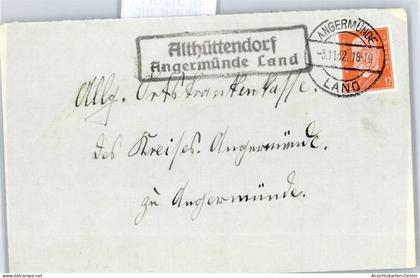 Althüttendorf
Angermünde Land
ANGERMÜNDE
-3.11.32. 18-19
LAND
12
Allg. Ortskrankenkasse.
des Kreises Angermünde.
zu Angermünde.
Ansichtskarten-Center.de